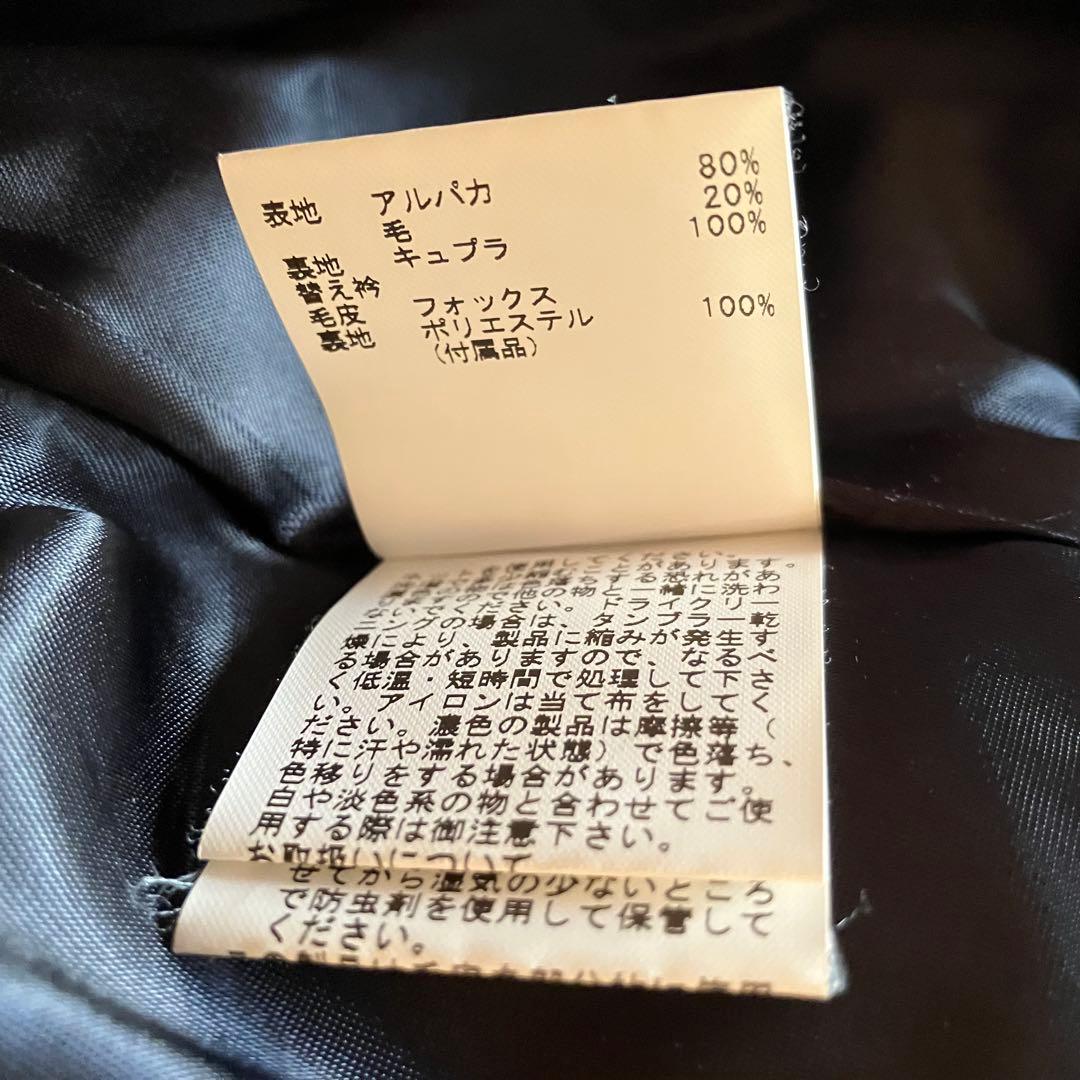 表地 アルパカ 80%
毛 20%
裏地 キュプラ 100%
替え衿
毛皮 フォックス
裏地 ポリエステル 100%
(付属品)
を使用してください。
ないでください。ドライクリー
ニングの場合は、タンブラー乾
燥により、製品に縮みが発生す
る場合がありますので、なるべ
く低温・短時間で処理して下さ
い。アイロンは当て布をしてく
ださい。濃色の製品は摩擦等(
特に汗や濡れた状態)で色落ち、
色移りをする場合があります。
白や淡色系の物と合わせてご使
用する際は御注意下さい。
お取扱いについて
せてから湿気の少ないところ
で防虫剤を使用して保管して
ください。